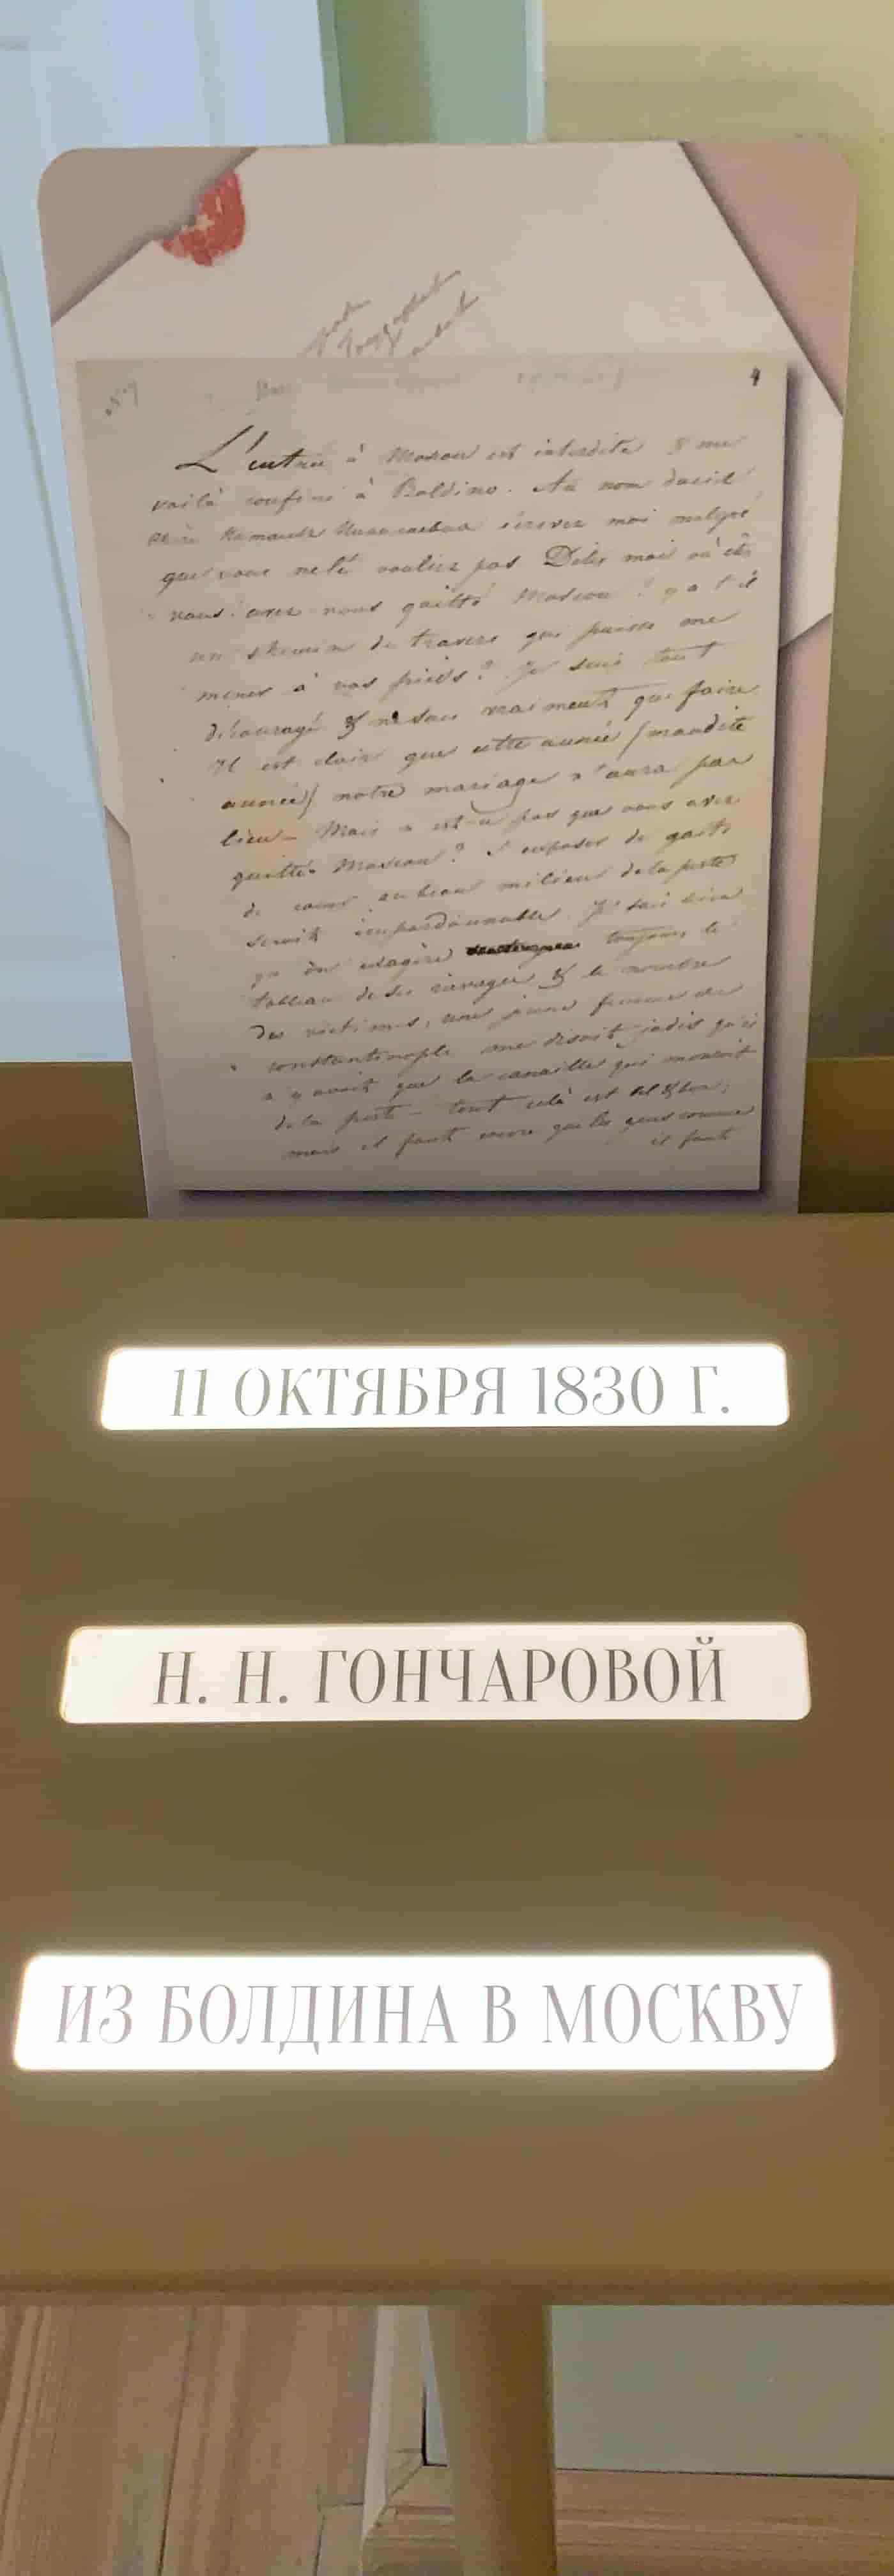 4
L'entrée à Moscou est interdite & me
voilà confiné à Boldino. Au nom du ciel
chère Наталья Николаевна écrivez moi malgré
que vous ne le vouliez pas Dites moi où êtes
vous? avez vous quitté Moscou? y a t'il
un chemin de travers qui puisse me
mener à vos pieds? Je suis tout
découragé & ne sais vraiment que faire.
Il est clair que cette année (maudite
année) notre mariage n'aura pas
lieu — Mais n'est-ce pas que vous avez
quitté Moscou? S'exposer de gaité
de cœur au beau milieu de la peste
seroit impardonnable. Je sais bien
qu'on exagère toujours le
tableau de ses ravages & le nombre
des victimes; une jeune femme de
Constantinople me disoit jadis qu'il
n'y avoit que la canaille qui mouroit
de la peste — tout cela est bel & bon;
mais il faut encore que les gens comme
il faut
11 ОКТЯБРЯ 1830 Г.
Н. Н. ГОНЧАРОВОЙ
ИЗ БОЛДИНА В МОСКВУ